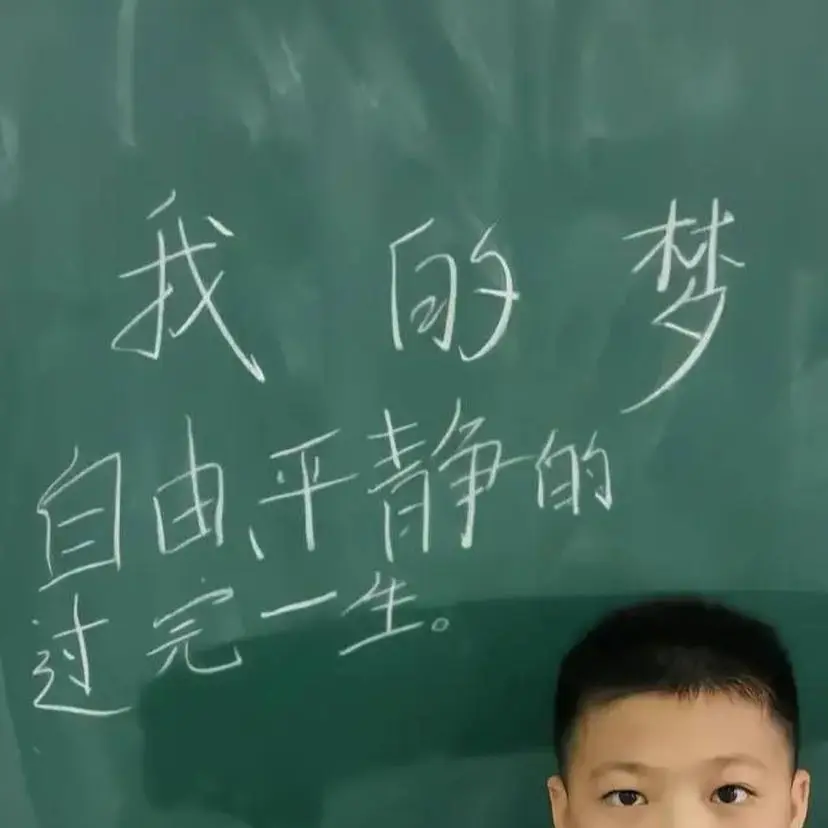 我的梦
自由、平静的
过完一生。